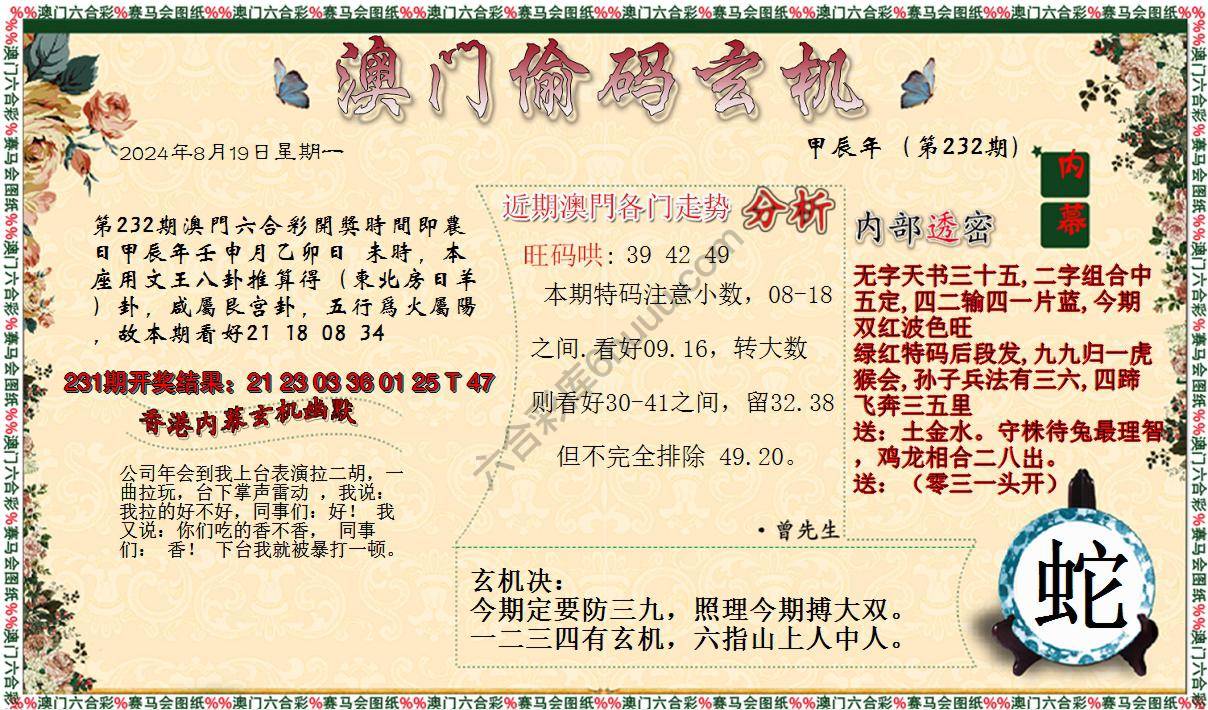 %%澳门六合彩%赛马会图纸%%澳门六合彩%赛马会图纸%%澳门六合彩%赛马会图纸%%澳门六合彩%赛马会图纸%%澳门六合彩%赛马会图纸%%澳门六合彩%赛马会图纸%%
澳门偷码玄机
2024年8月19日星期一
甲辰年（第232期）
内幕
第232期澳門六合彩開獎時間即農
日甲辰年壬申月乙卯日 未時，本
座用文王八卦推算得（東北房日羊
）卦，咸屬艮宫卦，五行爲火屬陽
，故本期看好21 18 08 34
231期开奖结果：21 23 03 36 01 25 T 47
香港内幕玄机幽默
公司年会到我上台表演拉二胡，一
曲拉玩，台下掌声雷动 ，我说：
我拉的好不好，同事们：好！ 我
又说：你们吃的香不香， 同事
们： 香！ 下台我就被暴打一顿。
近期澳門各门走势 分析
旺码哄: 39 42 49
本期特码注意小数，08-18
之间.看好09.16，转大数
则看好30-41之间，留32.38
但不完全排除 49.20。
·曾先生
内部透密
无字天书三十五,二字组合中
五定,四二输四一片蓝,今期
双红波色旺
绿红特码后段发,九九归一虎
猴会,孙子兵法有三六,四蹄
飞奔三五里
送：土金水。守株待兔最理智
，鸡龙相合二八出。
送：（零三一头开）
玄机决：
今期定要防三九，照理今期搏大双。
一二三四有玄机，六指山上人中人。
蛇
%%澳门六合彩%赛马会图纸%%澳门六合彩%赛马会图纸%%澳门六合彩%赛马会图纸%%澳门六合彩%赛马会图纸%%澳门六合彩%赛马会图纸%%澳门六合彩%赛马会图纸%%